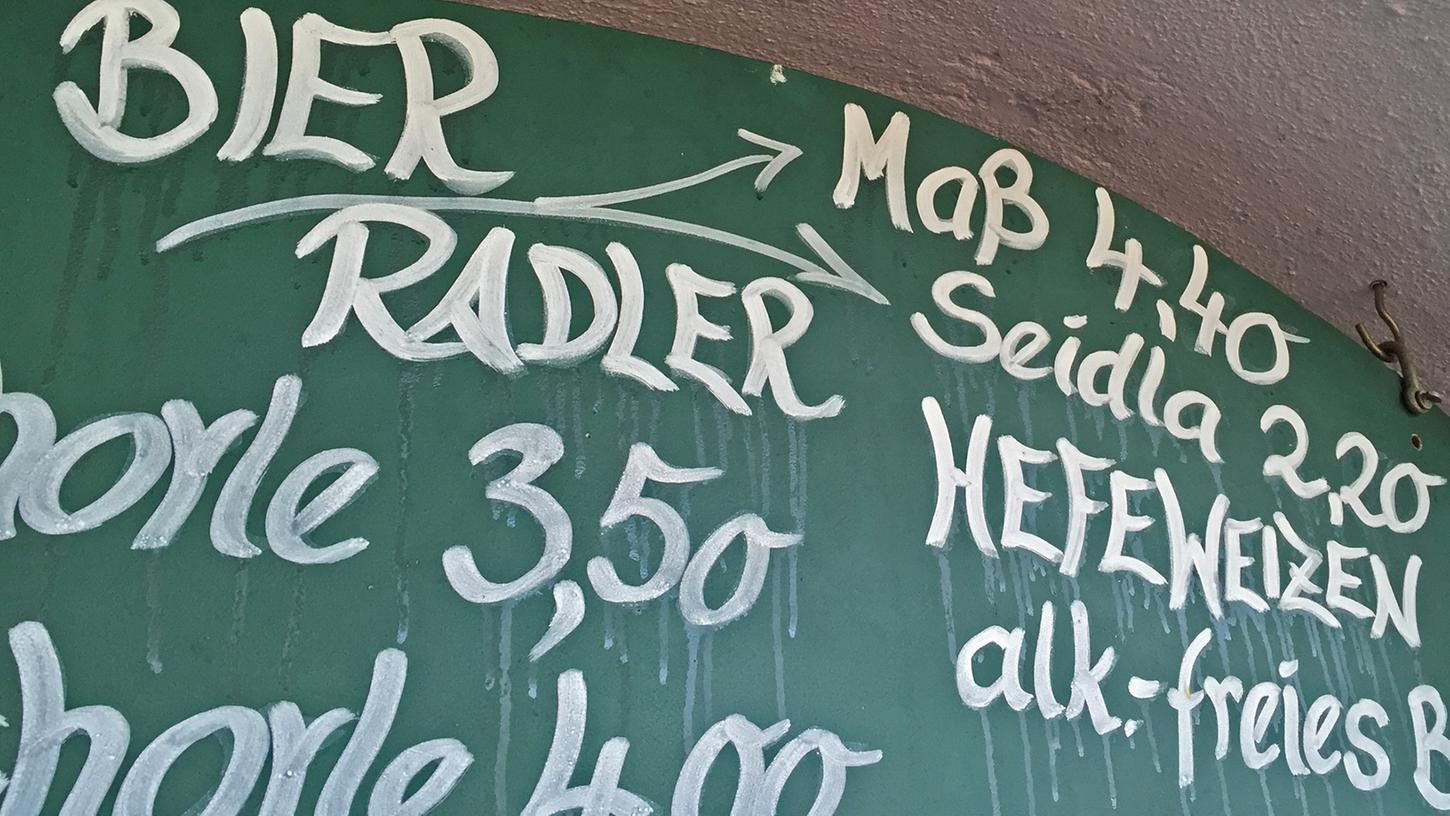 BIER
RADLER
Maß 4,40
Seidla 2,20
horle 3,50
horle 4,00
HEFEWEIZEN
alk.-freies B